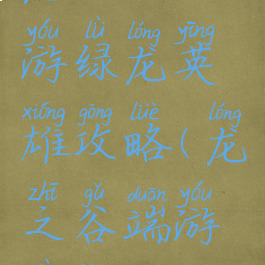 yóu lǜ lóng yīng
游绿龙英
xióng gōng lüè lóng
雄攻略(龙
zhī gǔ duān yóu
之谷端游